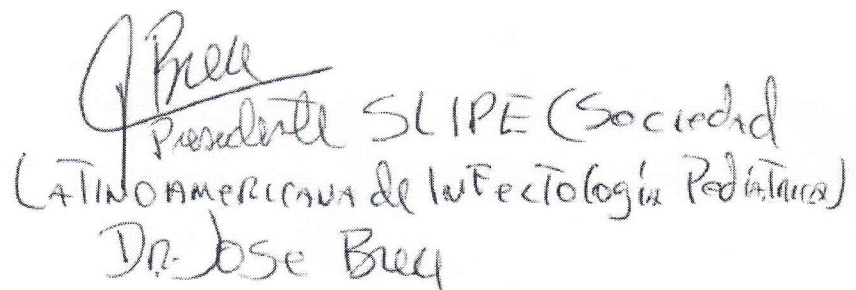 J Brea
Presidente SLIPE (Sociedad
LATINOAMERICANA de INFECTología Pediátrica)
DR. Jose Brea